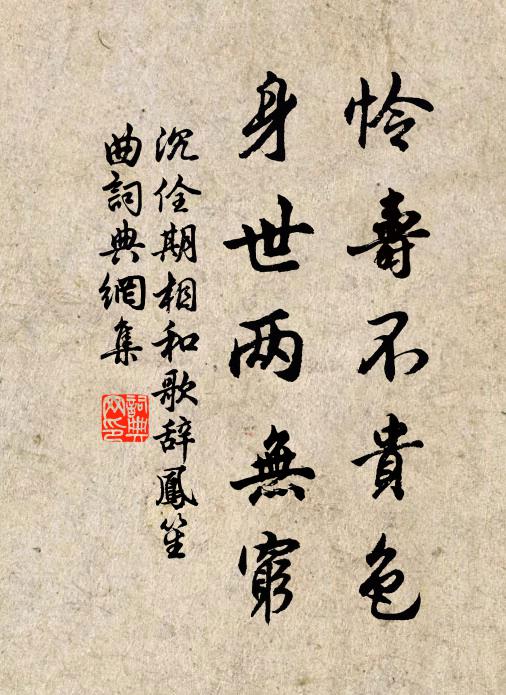 怜壽不貴色
身世两無窮
沉佺期相和歌辞鳳笙
曲詞典網集
詞典网印